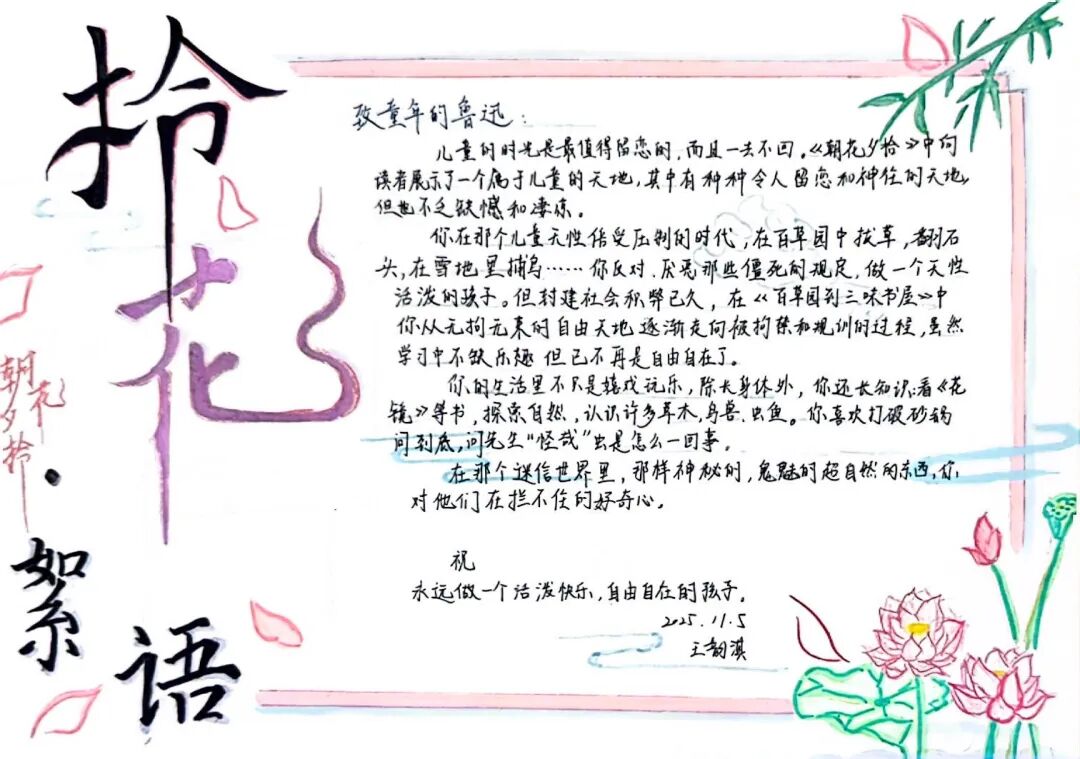 拎花
絮语
朝花夕拎
致童年的鲁迅：
儿童的时光是最值得留恋的，而且一去不回。《朝花夕拾》中向
读者展示了一个属于儿童的天地，其中有种种令人留恋和神往的天地，
但也不乏缺憾和凄凉。
你在那个儿童天性倍受压制的时代，在百草园中拔草，翻石
头，在雪地里捕鸟……你反对、厌恶那些僵死的规定，做一个天性
活泼的孩子。但封建社会积弊已久，在《百草园到三味书屋》中
你从无拘无束的自由天地逐渐走向被拘禁和规训的过程，虽然
学习中不缺乐趣但已不再是自由自在了。
你的生活里不只是嬉戏玩乐，除长身体外，你还长知识：看《花
镜》等书，探索自然，认识许多草木、鸟兽、虫鱼。你喜欢打破砂锅
问到底，问先生“怪哉”虫是怎么一回事。
在那个迷信世界里，那样神秘的，鬼魅的超自然的东西，你
对他们在拦不住的好奇心。
祝
永远做一个活泼快乐，自由自在的孩子。
2025.11.5
王韵淇